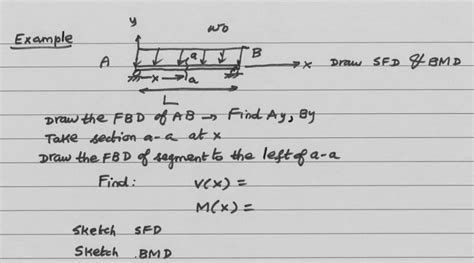 Example
y
wo
A
a
B
x
a
x
Draw SFD & BMD
L
Draw the FBD of AB → Find Ay, By
Take section a-a at x
Draw the FBD of segment to the left of a-a
Find: V(x) =
M(x) =
Sketch SFD
Sketch BMD